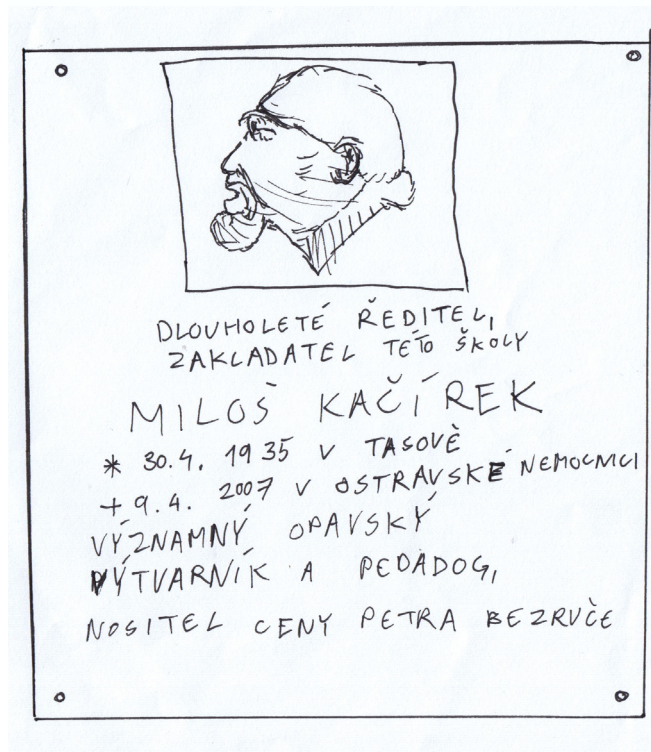 DLOUHOLETÉ ŘEDITEL,
ZAKLADATEL TÉTO ŠKOLY
MILOŠ KAČÍREK
* 30.4. 1935 V TASOVĚ
+ 9.4. 2007 V OSTRAVSKÉ NEMOCNICI
VÝZNAMNÝ OPAVSKÝ
VÝTVARNÍK A PEDADOG,
NOSITEL CENY PETRA BEZRUČE